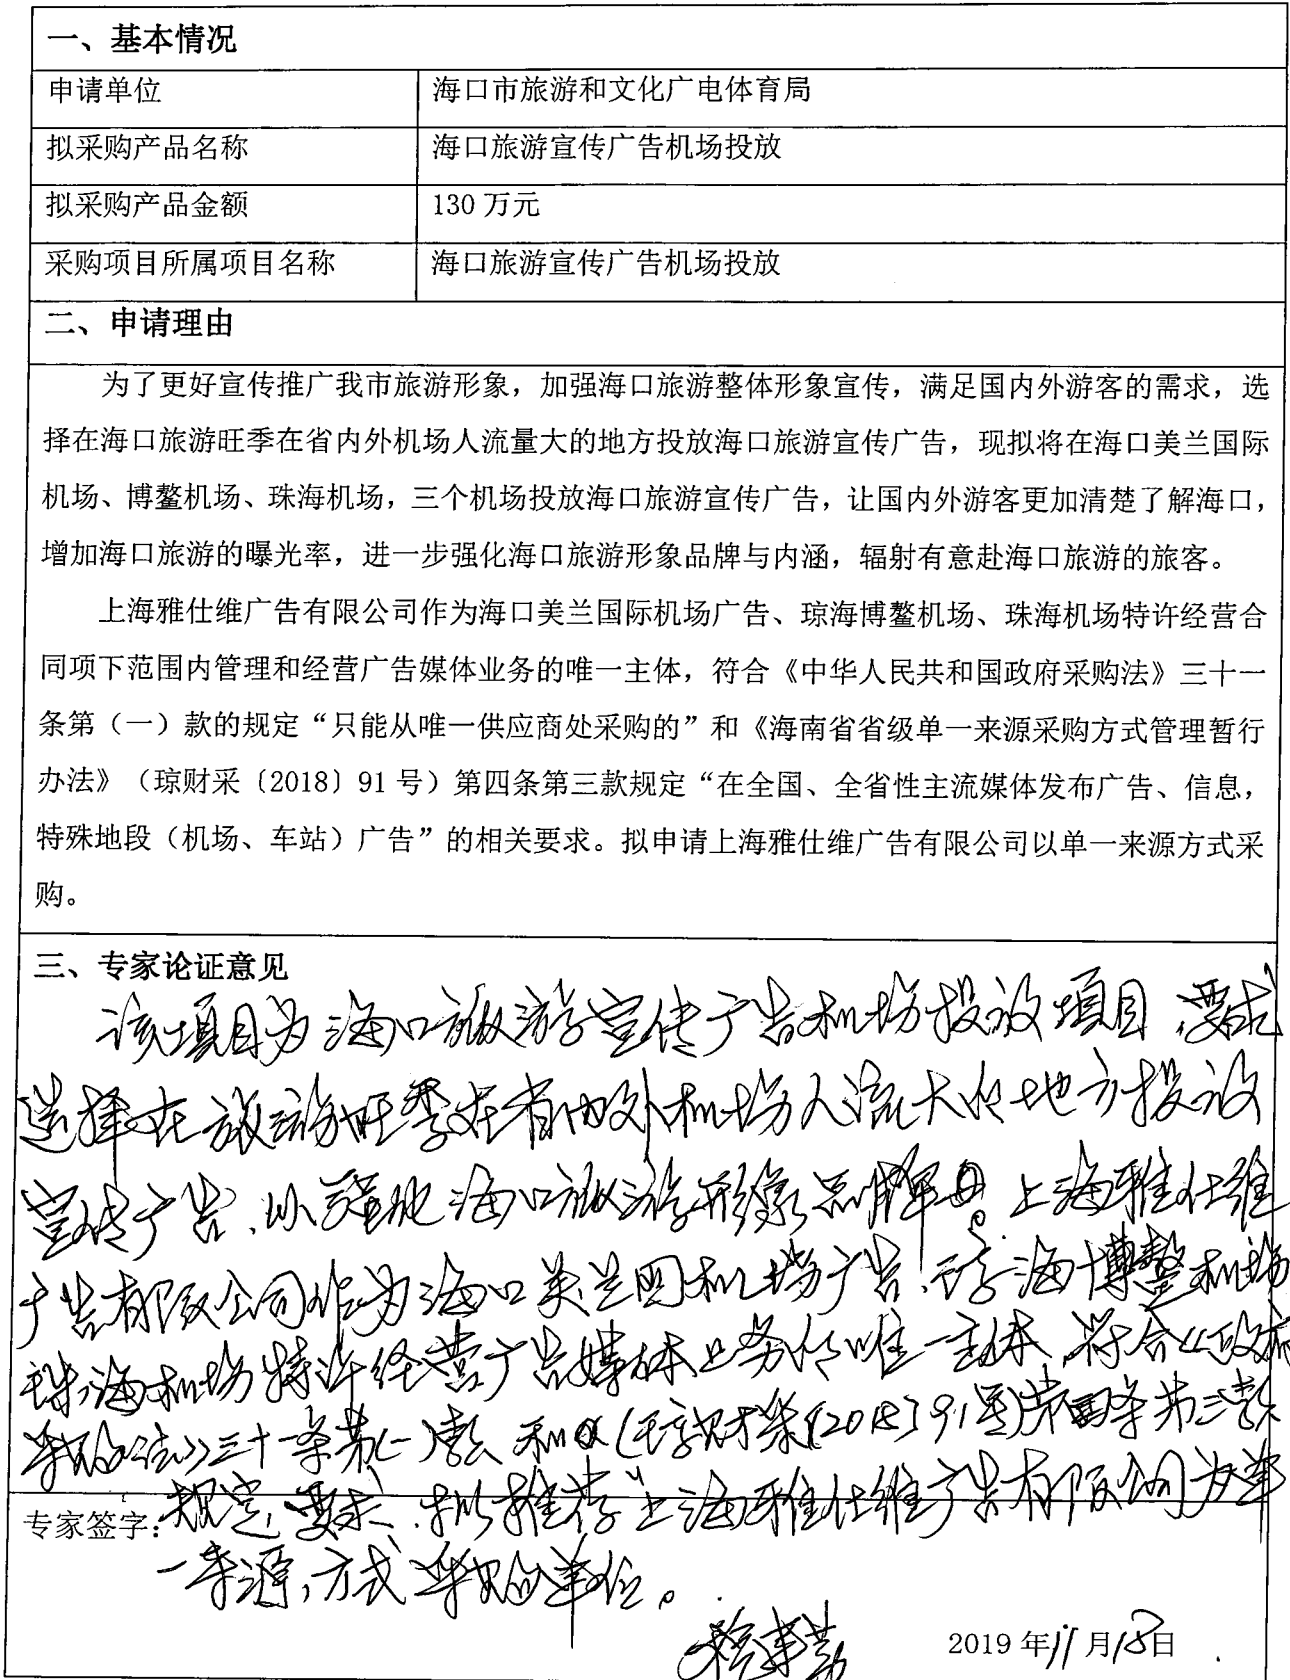 一、基本情况
申请单位 海口市旅游和文化广电体育局
拟采购产品名称 海口旅游宣传广告机场投放
拟采购产品金额 130 万元
采购项目所属项目名称 海口旅游宣传广告机场投放
二、申请理由
为了更好宣传推广我市旅游形象，加强海口旅游整体形象宣传，满足国内外游客的需求，选
择在海口旅游旺季在省内外机场人流量大的地方投放海口旅游宣传广告，现拟将在海口美兰国际
机场、博鳌机场、珠海机场，三个机场投放海口旅游宣传广告，让国内外游客更加清楚了解海口，
增加海口旅游的曝光率，进一步强化海口旅游形象品牌与内涵，辐射有意赴海口旅游的旅客。
上海雅仕维广告有限公司作为海口美兰国际机场广告、琼海博鳌机场、珠海机场特许经营合
同项下范围内管理和经营广告媒体业务的唯一主体，符合《中华人民共和国政府采购法》三十一
条第（一）款的规定“只能从唯一供应商处采购的”和《海南省省级单一来源采购方式管理暂行
办法》（琼财采〔2018〕91 号）第四条第三款规定“在全国、全省性主流媒体发布广告、信息，
特殊地段（机场、车站）广告”的相关要求。拟申请上海雅仕维广告有限公司以单一来源方式采
购。
三、专家论证意见
该项目为海口旅游宣传广告机场投放项目，要求
选择在旅游旺季在省内外机场人流大的地方投放
宣传广告，以强化海口旅游形象品牌。上海雅仕维
广告有限公司作为海口美兰国机场广告，琼海博鳌机场
珠海机场特许经营广告媒体业务的唯一主体，符合《政府
采购法》三十一条第（一）款和（琼财采〔2018〕91号）第四条第三款
规定要求，拟推荐上海雅仕维广告有限公司为单
专家签字：
一来源方式采购单位。
2019 年11月18日